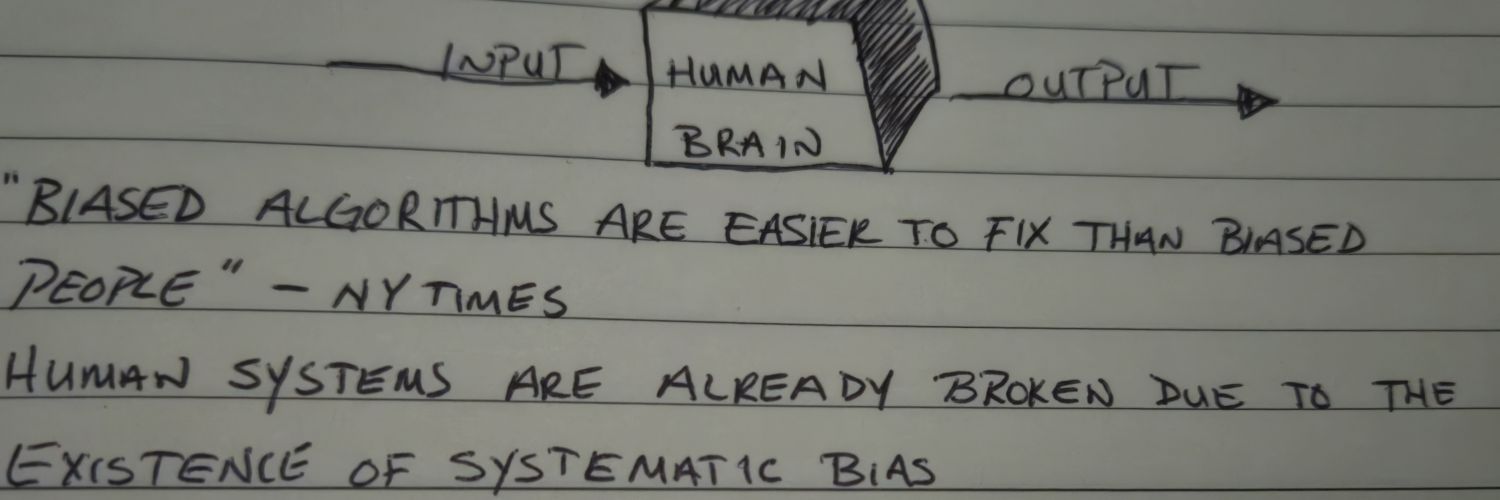 INPUT
HUMAN
BRAIN
OUTPUT
"BIASED ALGORITHMS ARE EASIER TO FIX THAN BIASED
PEOPLE" - NY TIMES
HUMAN SYSTEMS ARE ALREADY BROKEN DUE TO THE
EXISTENCE OF SYSTEMATIC BIAS